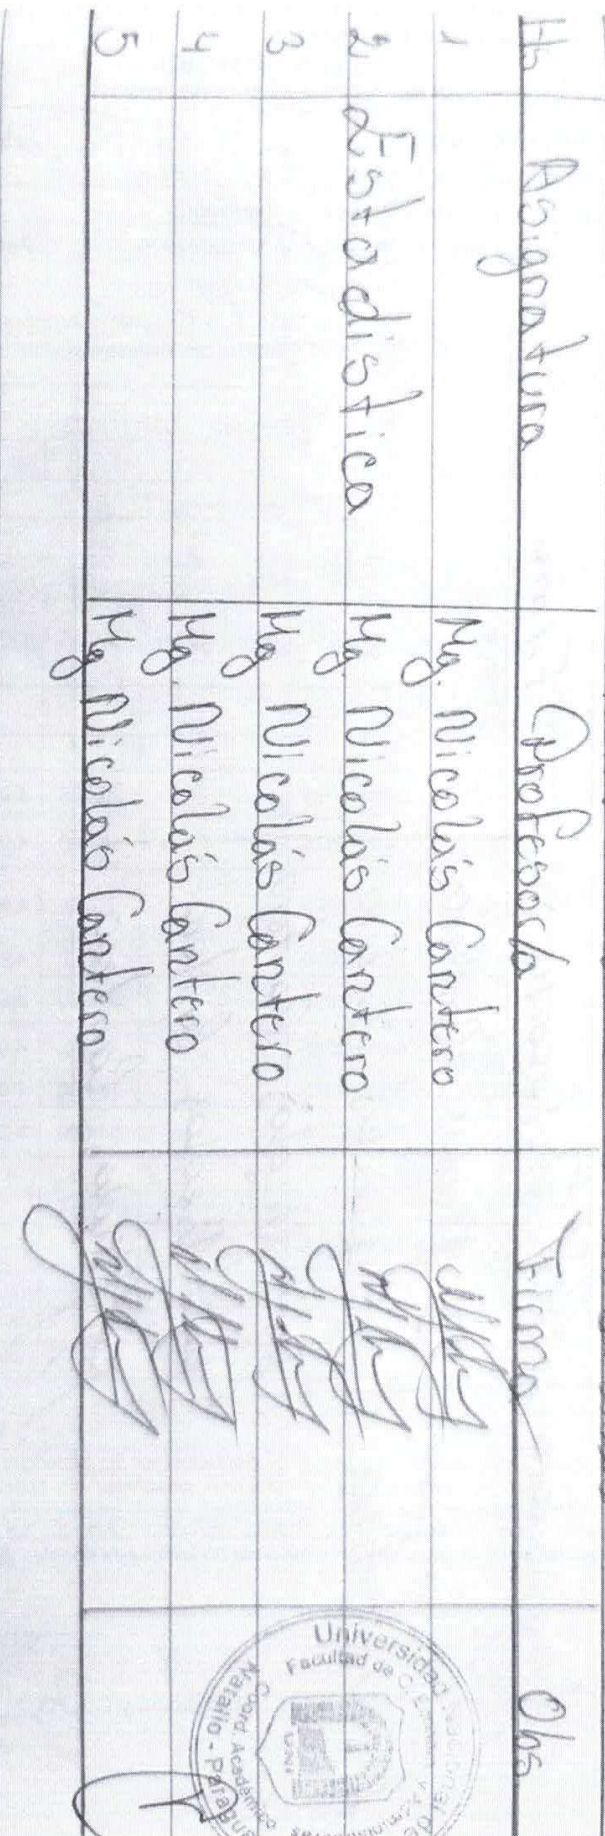 Hs Asignatura Profesor/a Firma Obs
1 Mg. Nicolás Cantero
2 Estadística Mg. Nicolás Cantero
3 Mg. Nicolás Cantero
4 Mg. Nicolás Cantero
5 Mg. Nicolás Cantero
Universidad Nacional de
Facultad de C.
Coord. Académica
Natalio - Paraguay